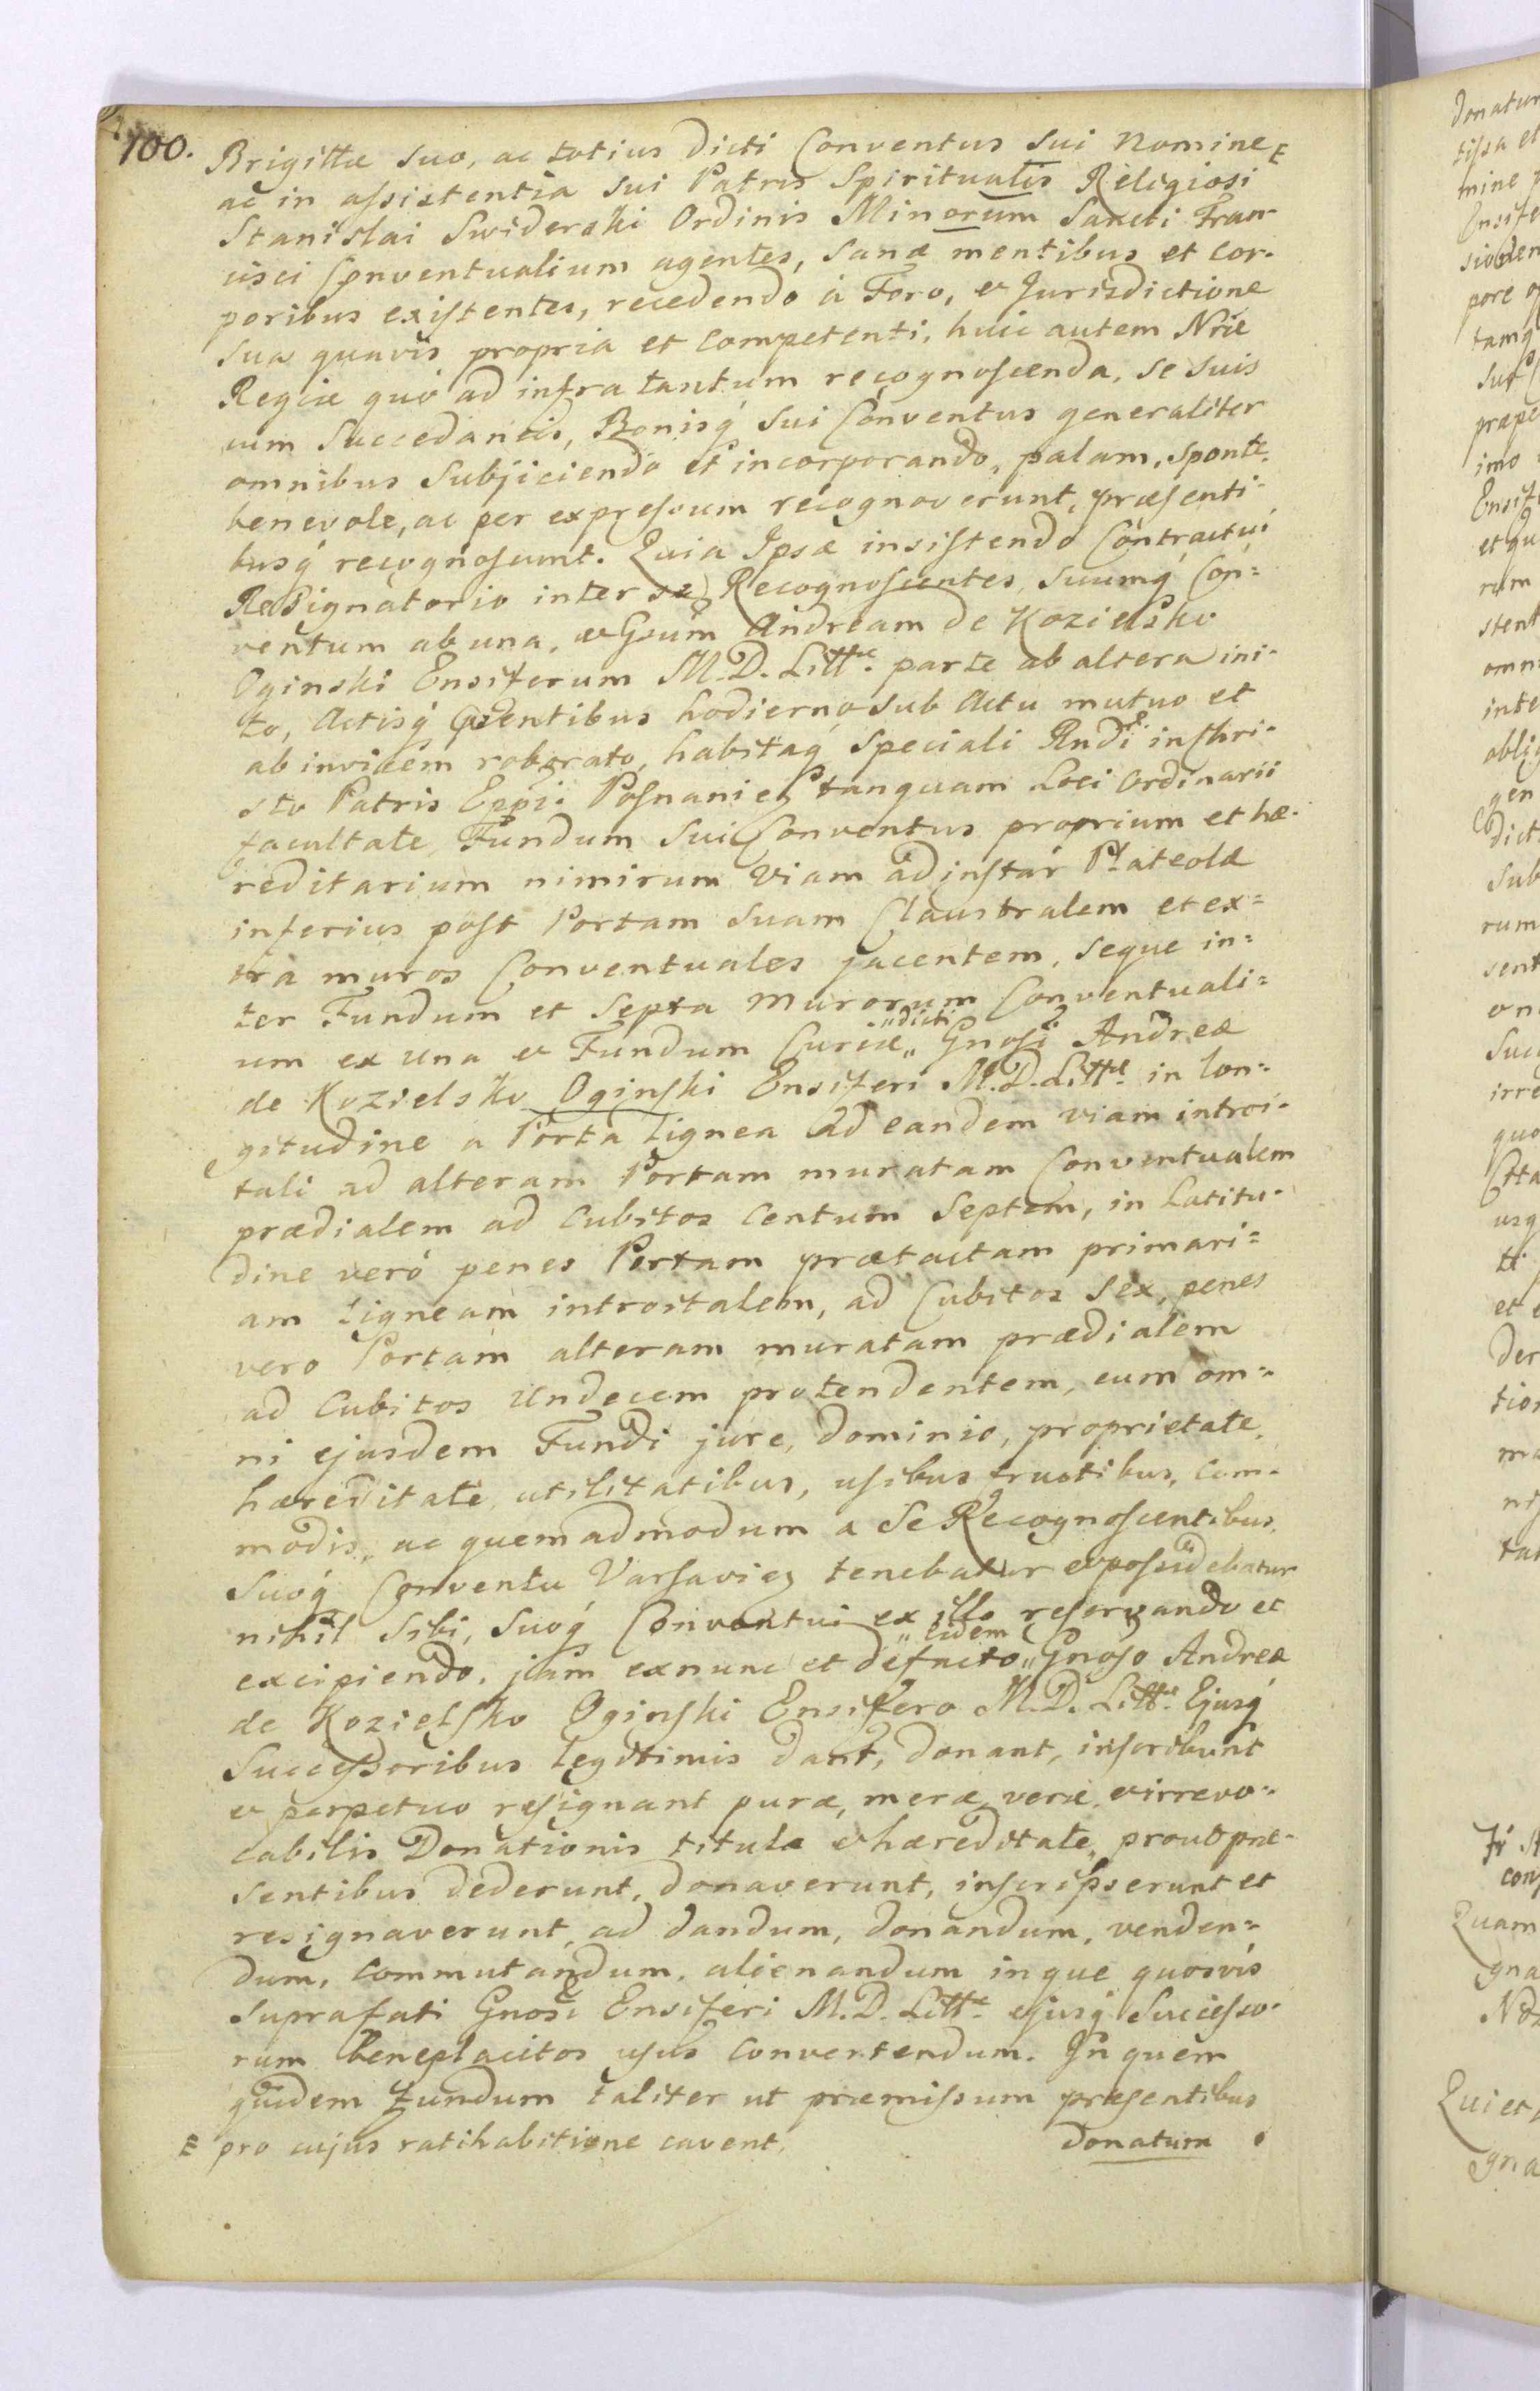 100.
Brigittæ suo, ac totius dicti Conventus sui Nomine E
ac in assistentia sui Patris Spiritualis Religiosi
Stanislai Swiderski Ordinis Minorum Sancti Fran-
cisci Conventualium agentes, sanæ mentibus et cor-
poribus existentes, recedendo à Foro, et Jurisdictione
sua quavis propria et competenti, huic autem Nræ
Regiæ quò ad infra tantum recognoscenda, se suis
cum succedaneis, Bonisq́ sui Conventus generaliter
omnibus subjiciendo et incorporando, palam, sponte,
benevole, ac per expressum recognoverunt, præsenti-
busq́ recognoscunt. Quia Ipsæ insistendo Contractui
Resignatorio inter se Recognoscentes, suumq́ Con=
ventum ab una, et Gsum Andream de Kozielsko
Oginski Ensiferum M. D. Littæ. parte ab altera ini-
to, Actisq́ pṡentibus hodierno sub Actu mutuo et
ab invicem roborato, habitaq́ speciali Rndi in Chri-
sto Patris Eppi Posnanieȝ tanquam Loci Ordinarii
facultate, Fundum sui Conventus proprium et hæ-
reditarium nimirum viam ad instar Plateolæ
inferius post Portam suam Claustralem et ex=
tra muros Conventuales jacentem, seque in=
ter Fundum et Septa Murorum Conventuali=
um ex una et Fundum Curiæ „ Gnosi Andreæ
„ dicti
de Kozielsko Oginski Ensiferi M. D. Littæ. in lon=
gitudine a Porta lignea ad eandem viam introi-
tali ad alteram Portam muratam Conventualem
prædialem ad cubitos centum septem, in Latitu-
dine verò penes Portam prætactam primari=
am ligneam introitalem, ad Cubitos sex, penes
vero Portam alteram muratam prædialem
ad Cubitos Undecem protendentem, cum om=
ni ejusdem Fundi jure, dominio, proprietate,
hæreditate, utilitatibus, usibus fructibus, com-
modis, ac quemadmodum a se Recognoscentibus,
suoq́ Conventu Varsavieȝ tenebatur et possidebatur
nihil sibi, suoq́ Conventui ex illo reservando et
excipiendo, jam exnunc et defacto „ Gnoso Andreæ
„ eidem
de Kozielsko Oginski Ensifero M. D. Littæ. Ejusq́
Successoribus legitimis dant, donant, inscribunt
et perpetuo resignant puræ, meræ, veræ, et irrevo-
cabilis Donationis titulo et hæreditate, prout præ-
sentibus dederunt, donaverunt, inscripserunt et
resignaverunt, ad dandum, donandum, venden=
dum, commutandum, alienandum inque quosvis
suprafati Gnosi Ensiferi M. D. Littæ. ejusq́ Successo-
rum beneplacitos usus convertendum. In quem
quidem fundum taliter ut præmissum præsentibus
E pro cujus ratihabitione cavent.
donatum